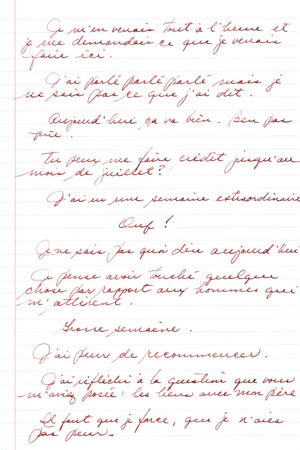 Je m'en venais tout à l'heure et
je me demandais ce que je venais
faire ici.
J'ai parlé parlé parlé mais je
ne sais pas ce que j'ai dit.
Aujourd'hui ça va bien. Ben pas
pire.
Tu peux me faire crédit jusqu'au
mois de juillet?
J'ai eu une semaine extraordinaire
Ouf!
Je ne sais pas quoi dire aujourd'hui
Je pense avoir touché quelque
chose par rapport aux hommes qui
m'attirent.
semaine.
J'ai peur de recommencer.
J'ai réfléchi à la question que vous
m'aviez posée: les liens avec mon père
Il faut que je force, que je n'aies
pas peur.